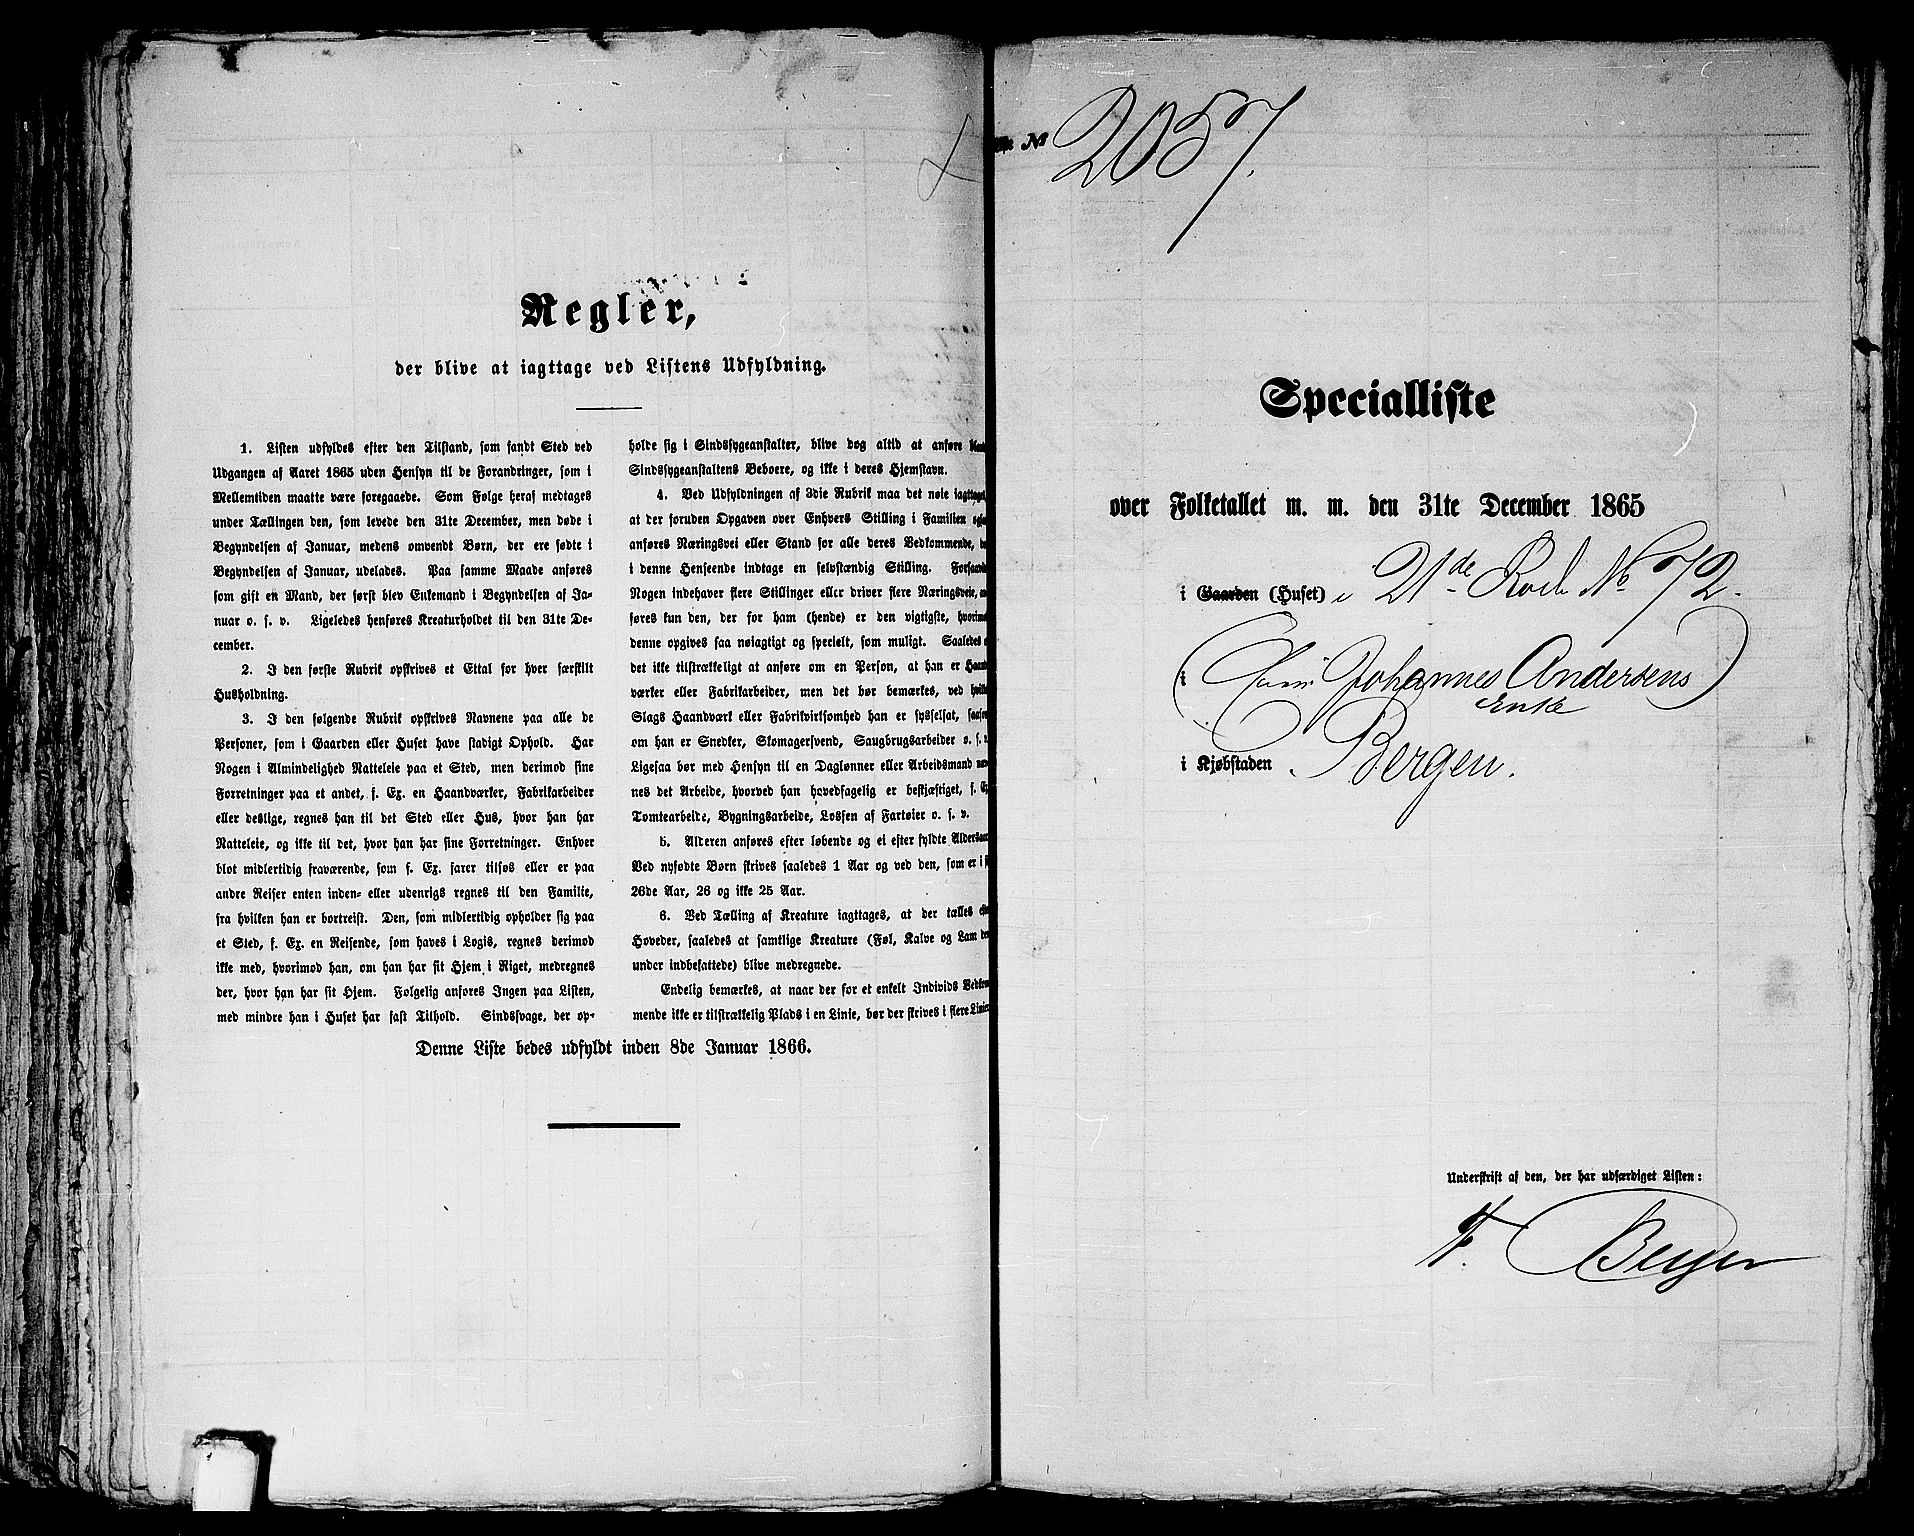 Regler,
der blive at iagttage ved Listens Udfyldning.
1. Listen udfyldes efter den Tilstand, som fandt Sted ved
Udgangen af Aaret 1865 uden Hensyn til de Forandringer, som i
Mellemtiden maatte være foregaaede. Som Følge heraf medtages
under Tællingen den, som levede den 31te December, men døde i
Begyndelsen af Januar, medens omvendt Børn, der ere fødte i
Begyndelsen af Januar, udelades. Paa samme Maade anføres
som gift en Mand, der først blev Enkemand i Begyndelsen af Ja-
nuar o. s. v. Ligeledes henføres Kreaturholdet til den 31te De-
cember.
2. I den første Rubrik opskrives et Ettal for hver særskilt
Husholdning.
3. I den følgende Rubrik opskrives Navnene paa alle de
Personer, som i Gaarden eller Huset have stadigt Ophold. Har
Nogen i Almindelighed Natteleie paa et Sted, men derimod sine
Forretninger paa et andet, f. Ex. en Haandværker, Fabrikarbeider
eller deslige, regnes han til det Sted eller Hus, hvor han har
Natteleie, og ikke til det, hvor han har sine Forretninger. Enhver
blot midlertidig fraværende, som f. Ex. farer tilsøs eller er paa
andre Reiser enten inden- eller udenrigs regnes til den Familie,
fra hvilken han er bortreist. Den, som midlertidig opholder sig paa
et Sted, f. Ex. en Reisende, som haves i Logis, regnes derimod
ikke med, hvorimod han, om han har sit Hjem i Riget, medregnes
der, hvor han har sit Hjem. Følgelig anføres Ingen paa Listen,
med mindre han i Huset har fast Tilhold. Sindssvage, der op-
holde sig i Sindssygeanstalter, blive dog altid at anføre
Sindssygeanstaltens Beboere, og ikke i deres Hjemstavn.
4. Ved Udfyldningen af 3die Rubrik maa det nøie iagttages,
at der foruden Opgaven over Enhvers Stilling i Familien
anføres Næringsvei eller Stand for alle deres Vedkommende,
i denne Henseende indtage en selvstændig Stilling.
Nogen indehaver flere Stillinger eller driver flere Næringsveie,
føres kun den, der for ham (hende) er den vigtigste,
denne opgives saa nøiagtigt og specielt, som muligt. Saaledes
det ikke tilstrækkeligt at anføre om en Person, at han er
værker eller Fabrikarbeider, men det bør bemærkes, ved
Slags Haandværk eller Fabrikvirksomhed han er sysselsat,
om han er Snedker, Skomagersvend, Saugbrugsarbeider o. s. v.
Ligesaa bør med Hensyn til en Daglønner eller Arbeidsmand
nes det Arbeide, hvorved han hovedsagelig er beskjæftiget, f.
Tomtearbeide, Bygningsarbeide, Lossen af Fartøier o. s. v.
5. Alderen anføres efter løbende og ei efter fyldte
Ved nyfødte Børn skrives saaledes 1 Aar og ved den, som er i
26de Aar, 26 og ikke 25 Aar.
6. Ved Tælling af Kreature iagttages, at der tælles
Hoveder, saaledes at samtlige Kreature (Føl, Kalve og Lam
under indbefattede) blive medregnede.
Endelig bemærkes, at naar der for et enkelt Individs
mende ikke er tilstrækkelig Plads i en Linie, bør der skrives i flere Linier
Denne Liste bedes udfyldt inden 8de Januar 1866.
№ 2057.
Specialliste
over Folketallet m. m. den 31te December 1865
i Gaarden (Huset) i 21de Rode No 72.
i Johannes Andersens
Enke
i Kjøbstaden Bergen.
Underskrift af den, der har udfærdiget Listen:
F. Beyer